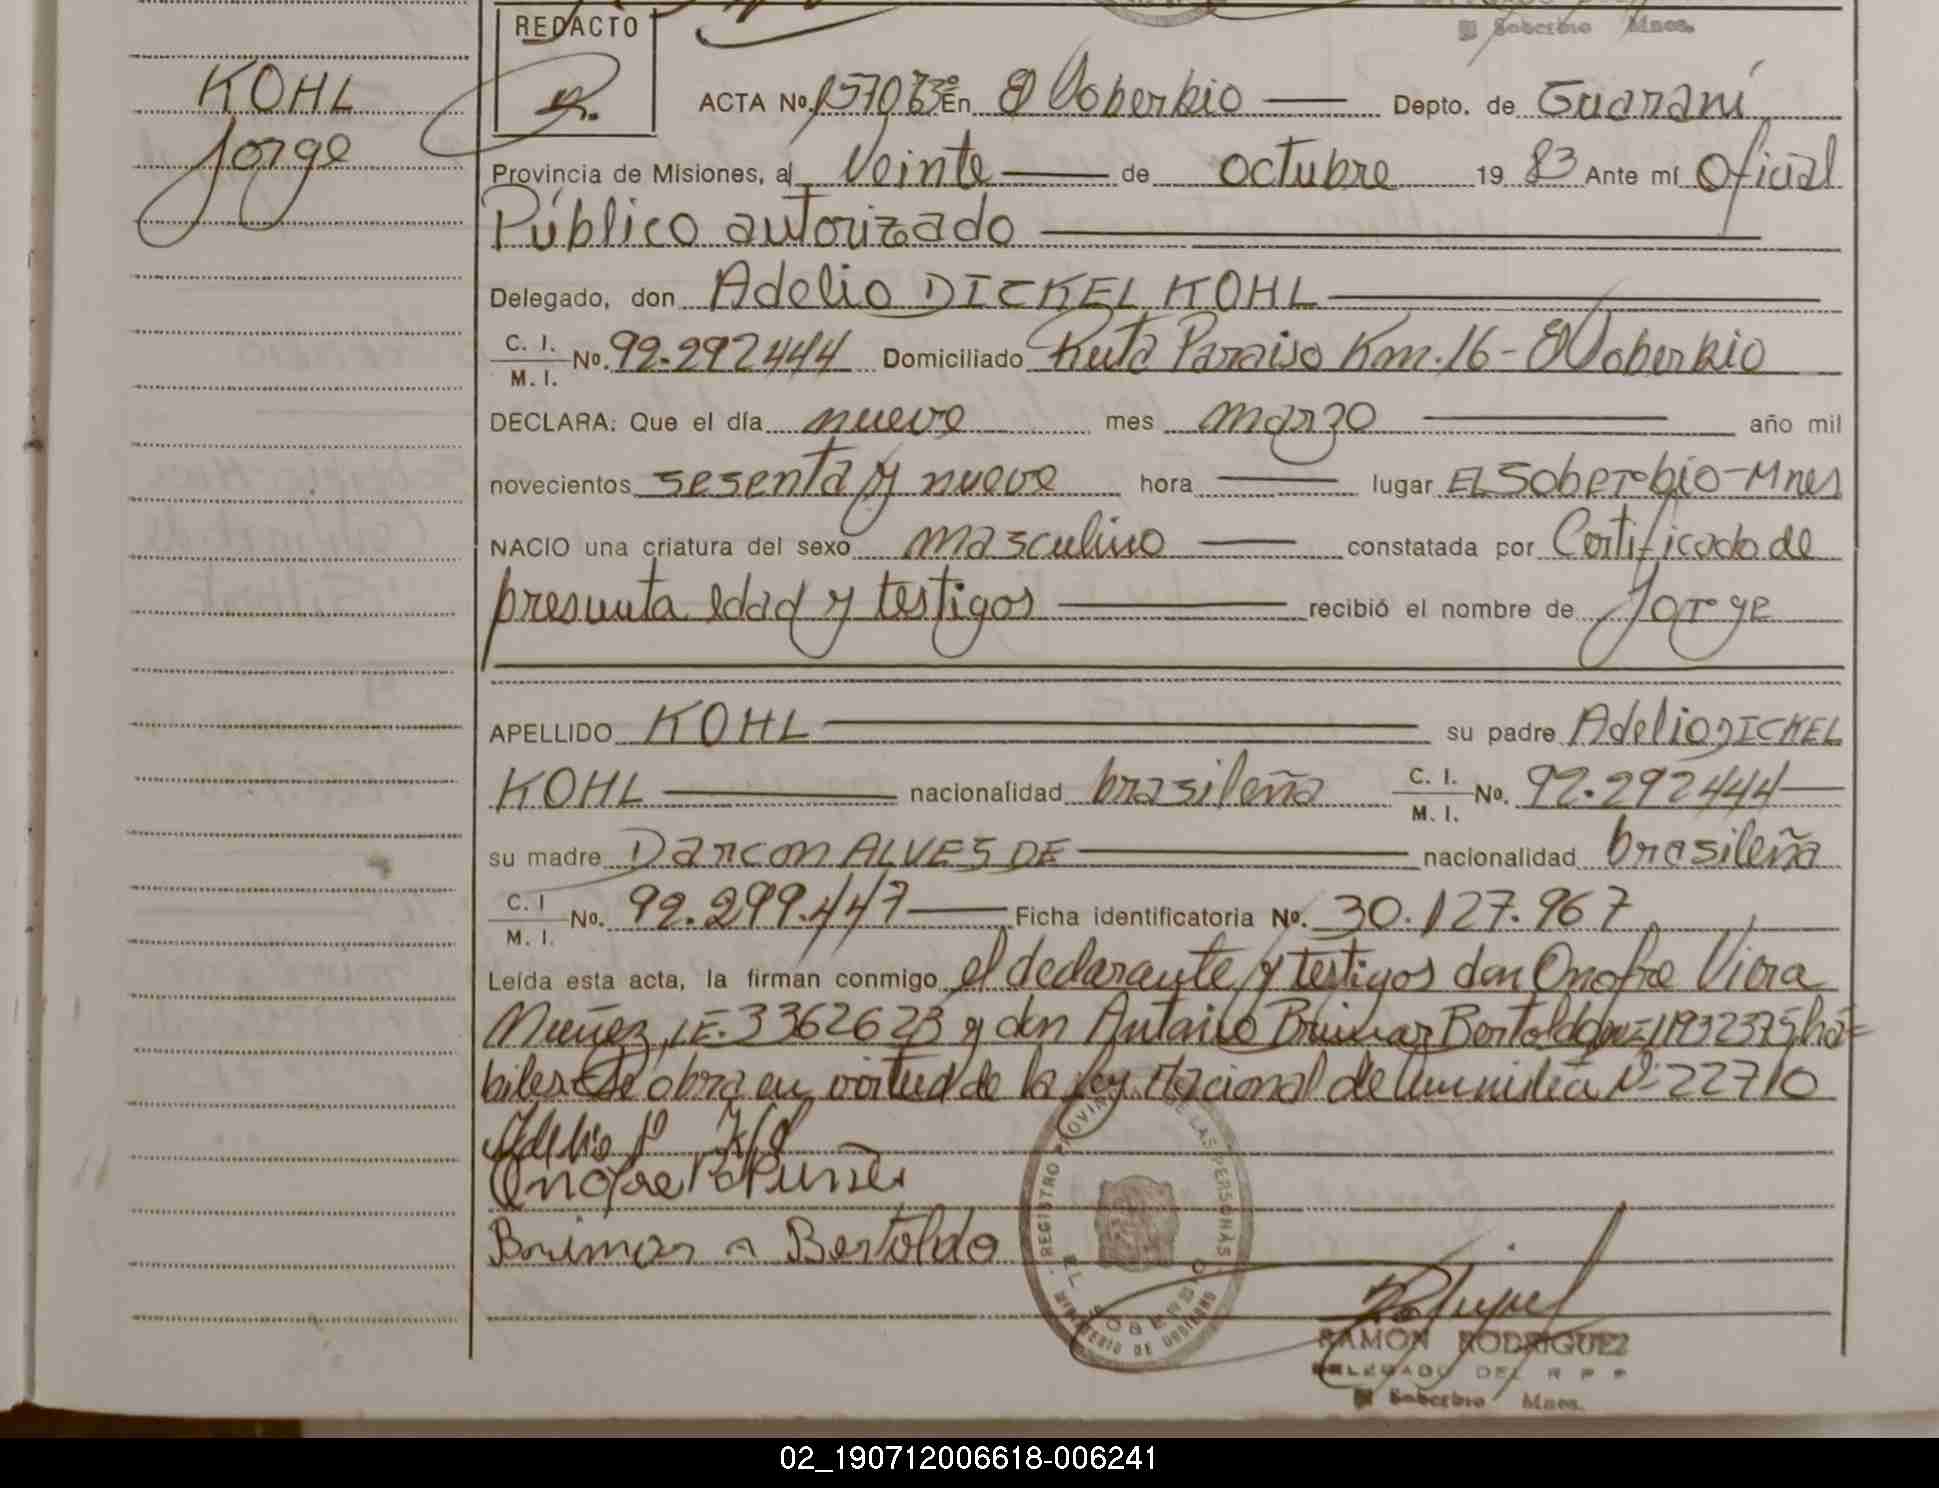 Soberbio Mnes.
REDACTO
KOHL
Jorge
ACTA No. En El Soberbio Depto. de Guaraní
Provincia de Misiones, al Veinte de octubre 19 83 Ante mí Oficial
Público autorizado
Delegado, don Adelio DICKEL KOHL
C. I.
M. I. No. 92.292444 Domiciliado Ruta Paraiso Km. 16 - El Soberbio
DECLARA: Que el día nueve mes marzo año mil
novecientos sesenta y nueve hora lugar EL Soberbio - Mnes
NACIO una criatura del sexo masculino constatada por Certificado de
presunta edad y testigos recibió el nombre de Jorge
APELLIDO KOHL su padre Adelio DICKEL
KOHL nacionalidad brasileña C. I. M. I. No. 92.292444
su madre Darcom ALVES DE nacionalidad brasileña
C. I
M. I. No. 92.299.447 Ficha identificatoria No. 30.127.967
Leída esta acta, la firman conmigo el declarante y testigos don Onofre Viera
Muñez, I.E. 3362623 y don Antonio Brimar Bertoldo há=
biles Se obra en virtud de la Ley Nacional de Amnistía Nº 22710
Brimar A Bertoldo
REGISTRO PROVINCIAL DE LAS PERSONAS
EL SOBERBIO
MINISTERIO DE GOBIERNO
RAMON RODRIGUEZ
DELEGADO DEL R P P
El Soberbio Mnes.
02_190712006618-006241